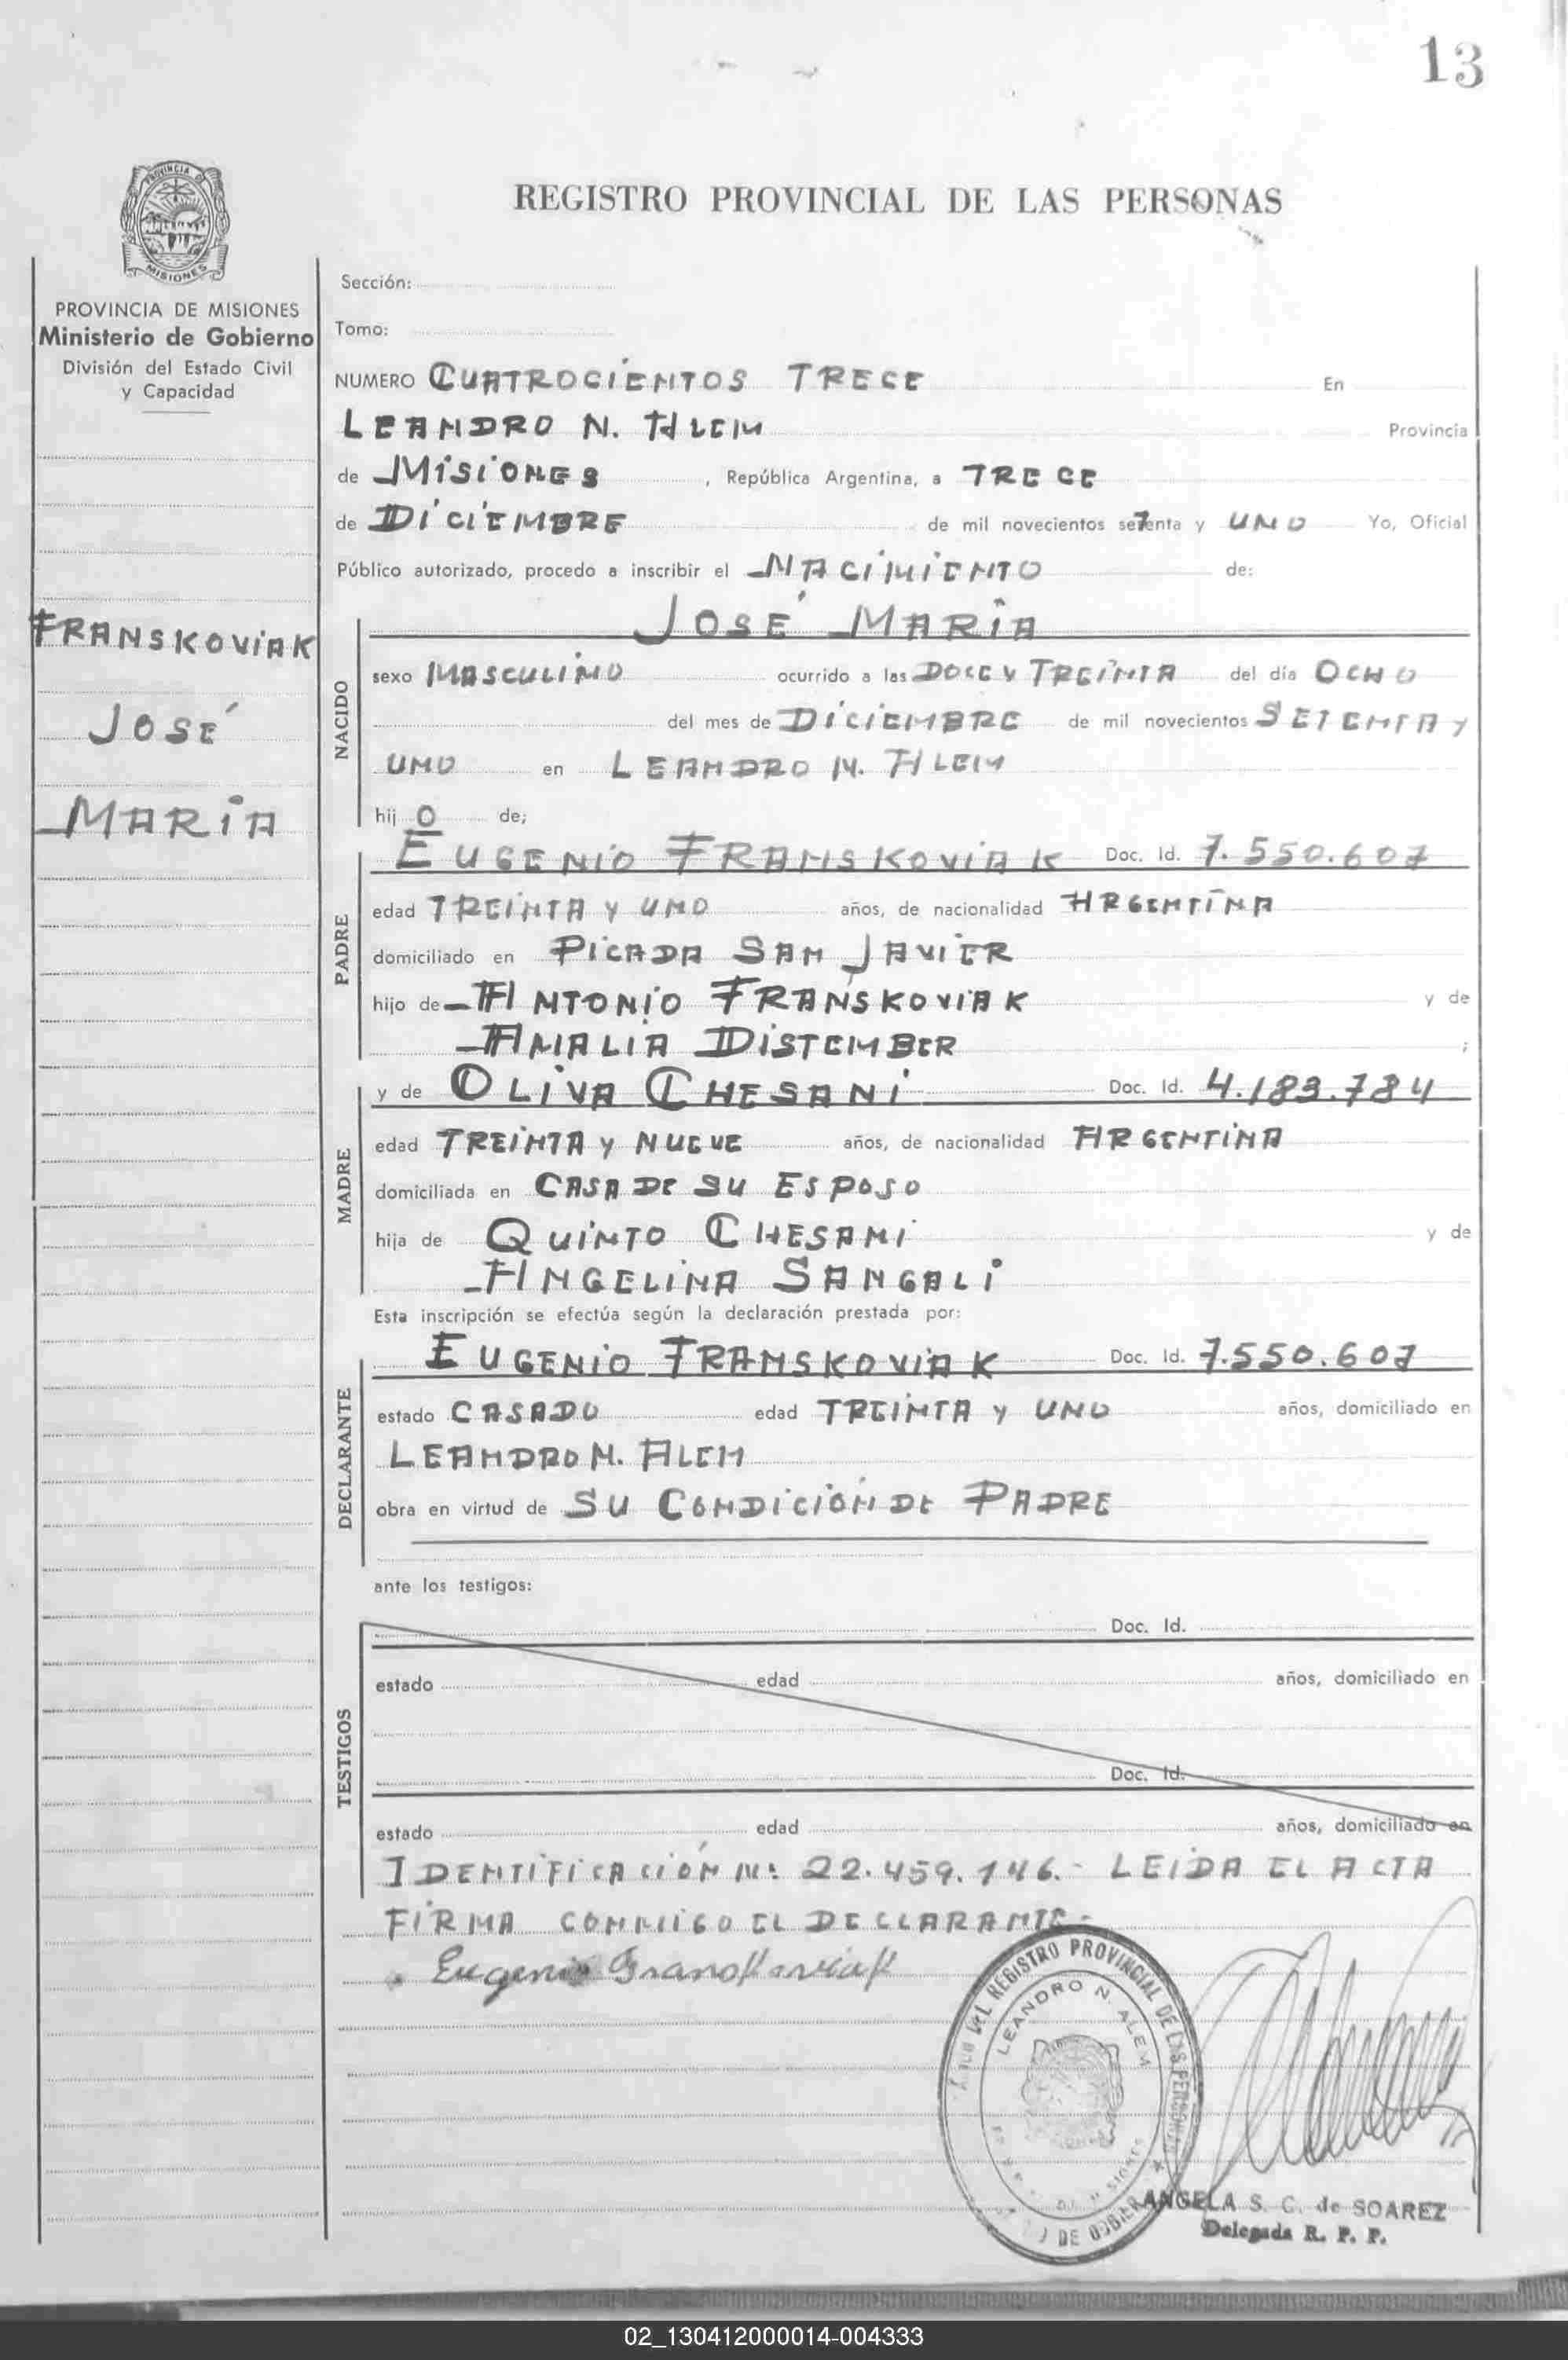 13
PROVINCIA
MISIONES
PROVINCIA DE MISIONES
Ministerio de Gobierno
División del Estado Civil
y Capacidad
FRANSKOVIAK
JOSÉ
MARIA
REGISTRO PROVINCIAL DE LAS PERSONAS
Sección:
Tomo:
NUMERO CUATROCIENTOS TRECE En
LEANDRO N. ALEM Provincia
de MISIONES, República Argentina, a TRECE
de DICIEMBRE de mil novecientos setenta y UNO Yo, Oficial
Público autorizado, procedo a inscribir el NACIMIENTO de:
JOSÉ MARIA
NACIDO
sexo MASCULINO ocurrido a las DOCE Y TREINTA del día OCHO
del mes de DICIEMBRE de mil novecientos SETENTA Y
UNO en LEANDRO N. ALEM
hijo de;
EUGENIO FRANSKOVIAK Doc. Id. 7.550.607
PADRE
edad TREINTA Y UNO años, de nacionalidad ARGENTINA
domiciliado en PICADA SAN JAVIER
hijo de ANTONIO FRANSKOVIAK y de
AMALIA DISTEMBER ;
y de OLIVA CHESANI Doc. Id. 4.183.784
MADRE
edad TREINTA Y NUEVE años, de nacionalidad ARGENTINA
domiciliada en CASA DE SU ESPOSO
hija de QUINTO CHESANI y de
ANGELINA SANGALI
Esta inscripción se efectúa según la declaración prestada por:
EUGENIO FRANSKOVIAK Doc. Id. 7.550.607
DECLARANTE
estado CASADO edad TREINTA Y UNO años, domiciliado en
LEANDRO N. ALEM
obra en virtud de SU CONDICIÓN DE PADRE
ante los testigos:
Doc. Id.
TESTIGOS
estado edad años, domiciliado en
Doc. Id.
estado edad años, domiciliado en
IDENTIFICACIÓN Nº 22.459.146.- LEIDA EL ACTA
FIRMA CONMIGO EL DECLARANTE.-
Eugenio Franskoviak
DEL REGISTRO PROVINCIAL DE LAS PERSONAS
LEANDRO N. ALEM
DE MISIONES
DE GOBIER
ANGELA S. C. de SOAREZ
Delegada R. P. P.
02_130412000014-004333